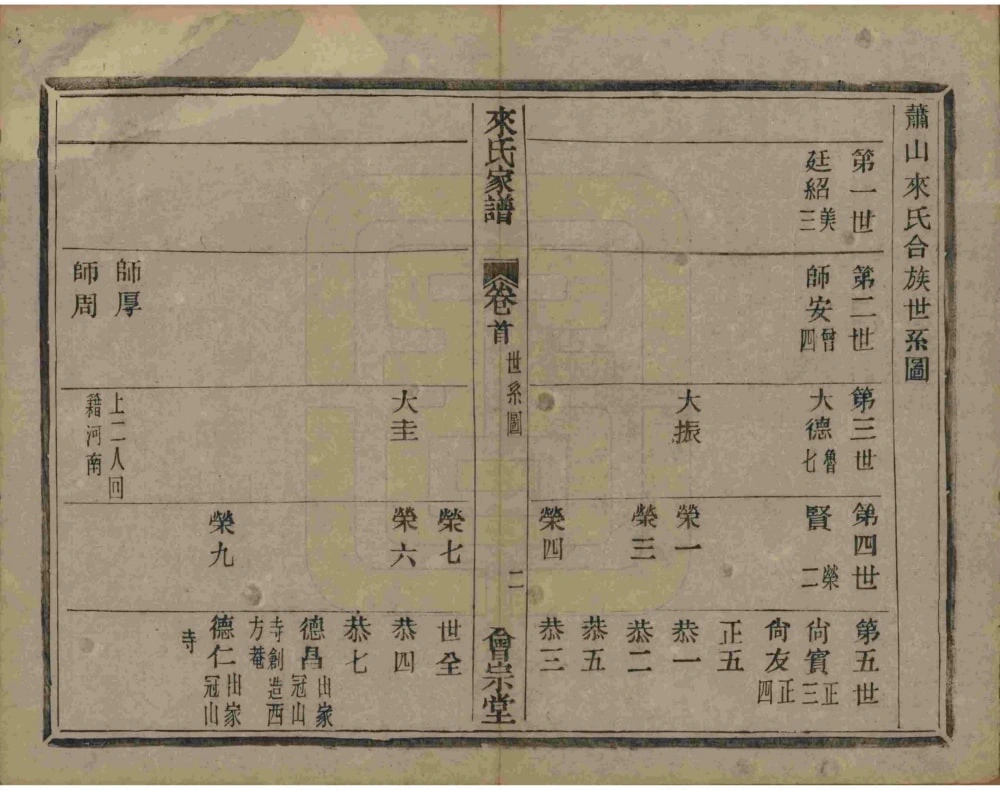 蕭山來氏合族世系圖
第一世
廷紹美三
第二世
師安曾四
第三世
大德魯七
大振
第四世
賢榮二
榮一
榮三
榮四
第五世
尙賓正三
尙友正四
正五
恭一
恭二
恭五
恭三
來氏家譜
卷首
世系圖
二
會宗堂
師厚
師周
大圭
上二人回
籍河南
榮七
榮六
榮九
世全
恭四
恭七
德昌出家冠山
寺創造西
方菴
德仁出家冠山
寺